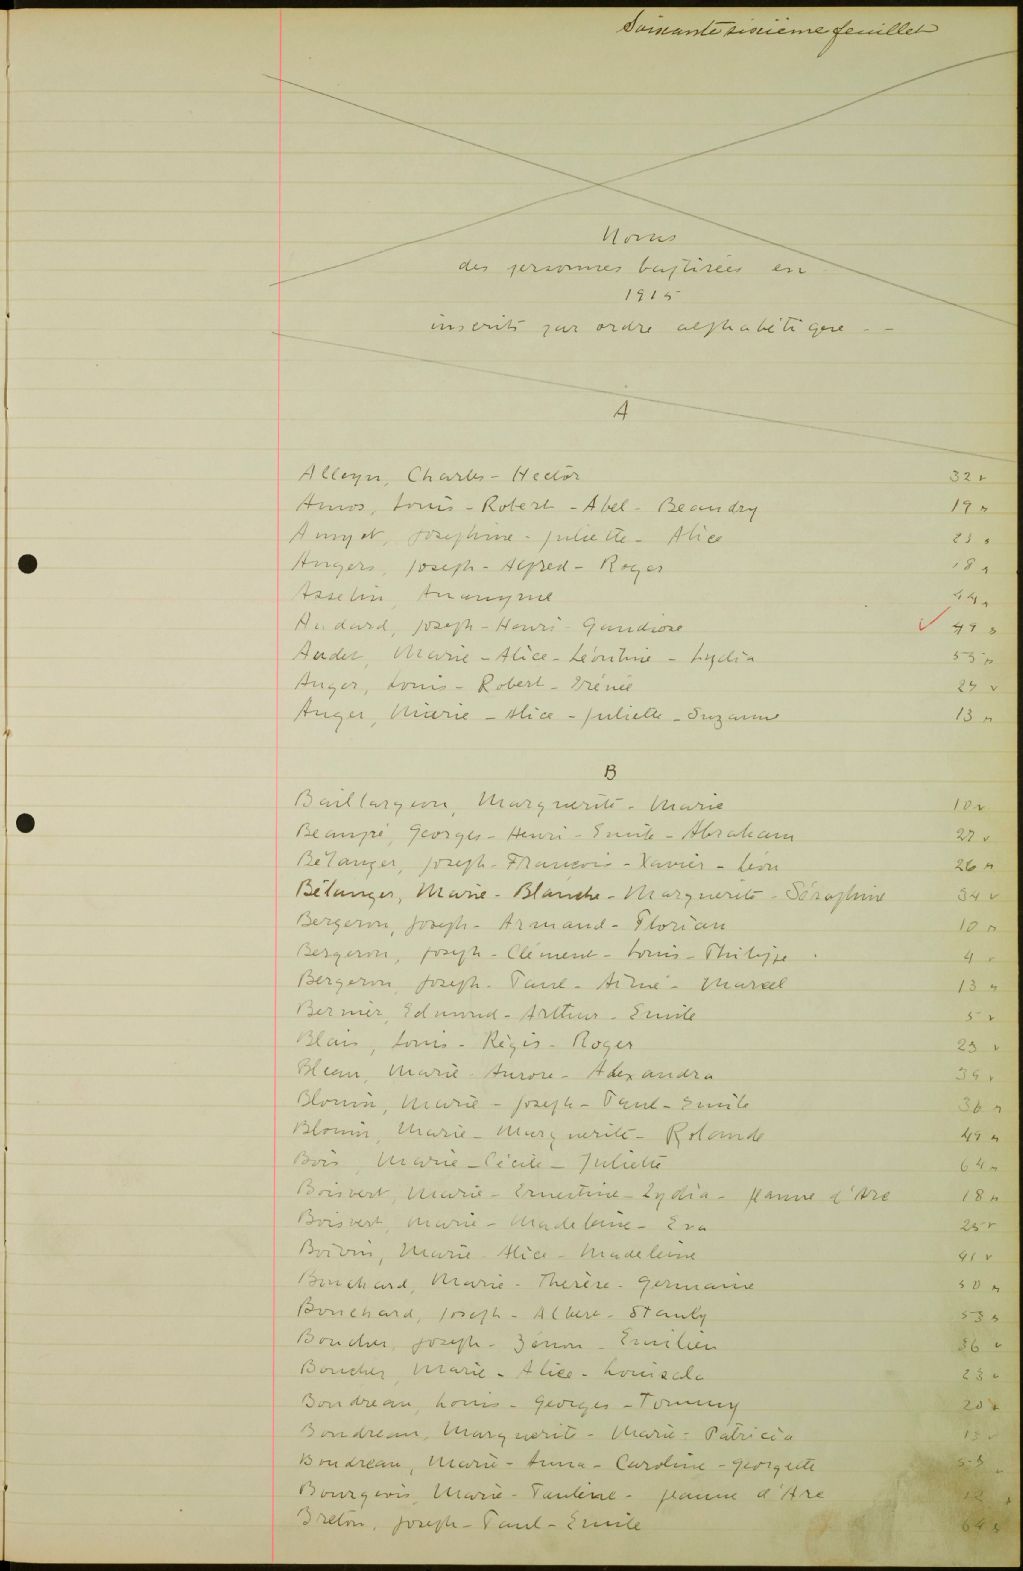 Soixante sixième feuillet
Noms
des personnes baptisées en
1915
inscrits par ordre alphabétique - -
A
Alleyn, Charles - Hector 32 v
Amos, Louis - Robert - Abel - Beaudry 19 r
Amyot, Josephine - Juliette - Alice 23
Angers, Joseph - Alfred - Roger 18 r
Asselin, Anonyme 44 r
Audard, Joseph - Henri - Gaudiose 49
Audet, Marie - Alice - Léontine - Lydia 55 r
Auger, Louis - Robert - Irénée 24 v
Auger, Marie - Alice - Juliette - Suzanne 13 r
B
Baillargeon, Marguerite - Marie 10 v
Beaupré, Georges - Henri - Emile - Abraham 27 v
Bélanger, Joseph - François - Xavier - Léon 26 r
Bélanger, Marie - Blanche - Marguerite - Séraphine 34 v
Bergeron, Joseph - Armand - Florian 10 r
Bergeron, Joseph - Clément - Louis - Philippe 4 v
Bergeron, Joseph - Paul - Aimé - Marcel 13 r
Bernier, Edmond - Arthur - Emile 5 v
Blais, Louis - Régis - Roger 23 v
Bleau, Marie - Aurore - Alexandra v
Blouin, Marie - Joseph - Paul - Emile 36 r
Blouin, Marie - Marguerite - Rolande 49 r
Bois, Marie - Cécile - Juliette 64 r
Boisvert, Marie - Ernestine - Lydia - Jeanne d'Arc 18 r
Boisvert, Marie - Madeleine - Eva 25 v
Boivin, Marie - Alice - Madeleine 41 v
Bouchard, Marie - Therèse - Germaine 50 r
Bouchard, Joseph - Albert - Stanly 53 r
Boucher, Joseph - Zénon - Emilien 56 v
Boucher, Marie - Alice - Louisela 23
Boudreau, Louis - Georges - Tommy 20
Boudreau, Marguerite - Marie - Patricia
Boudreau, Marie - Anna - Caroline - Georgette
Bourgeois, Marie - Pauline - Jeanne d'Arc
Breton, Joseph - Paul - Emile 64